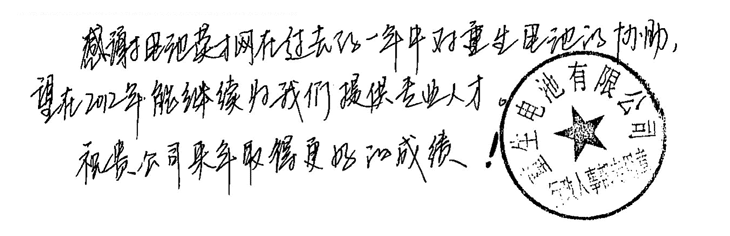 感谢电池英才网在过去的一年中对重生电池的协助,
望在2012年能继续为我们提供专业人才。
祝贵公司来年取得更好的成绩!
重生电池有限公司
行政人事部